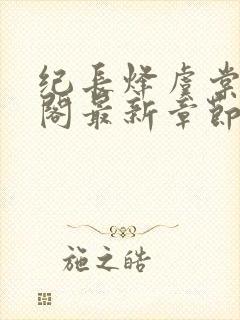 纪长烽虞棠
阁最新章节
施之皓